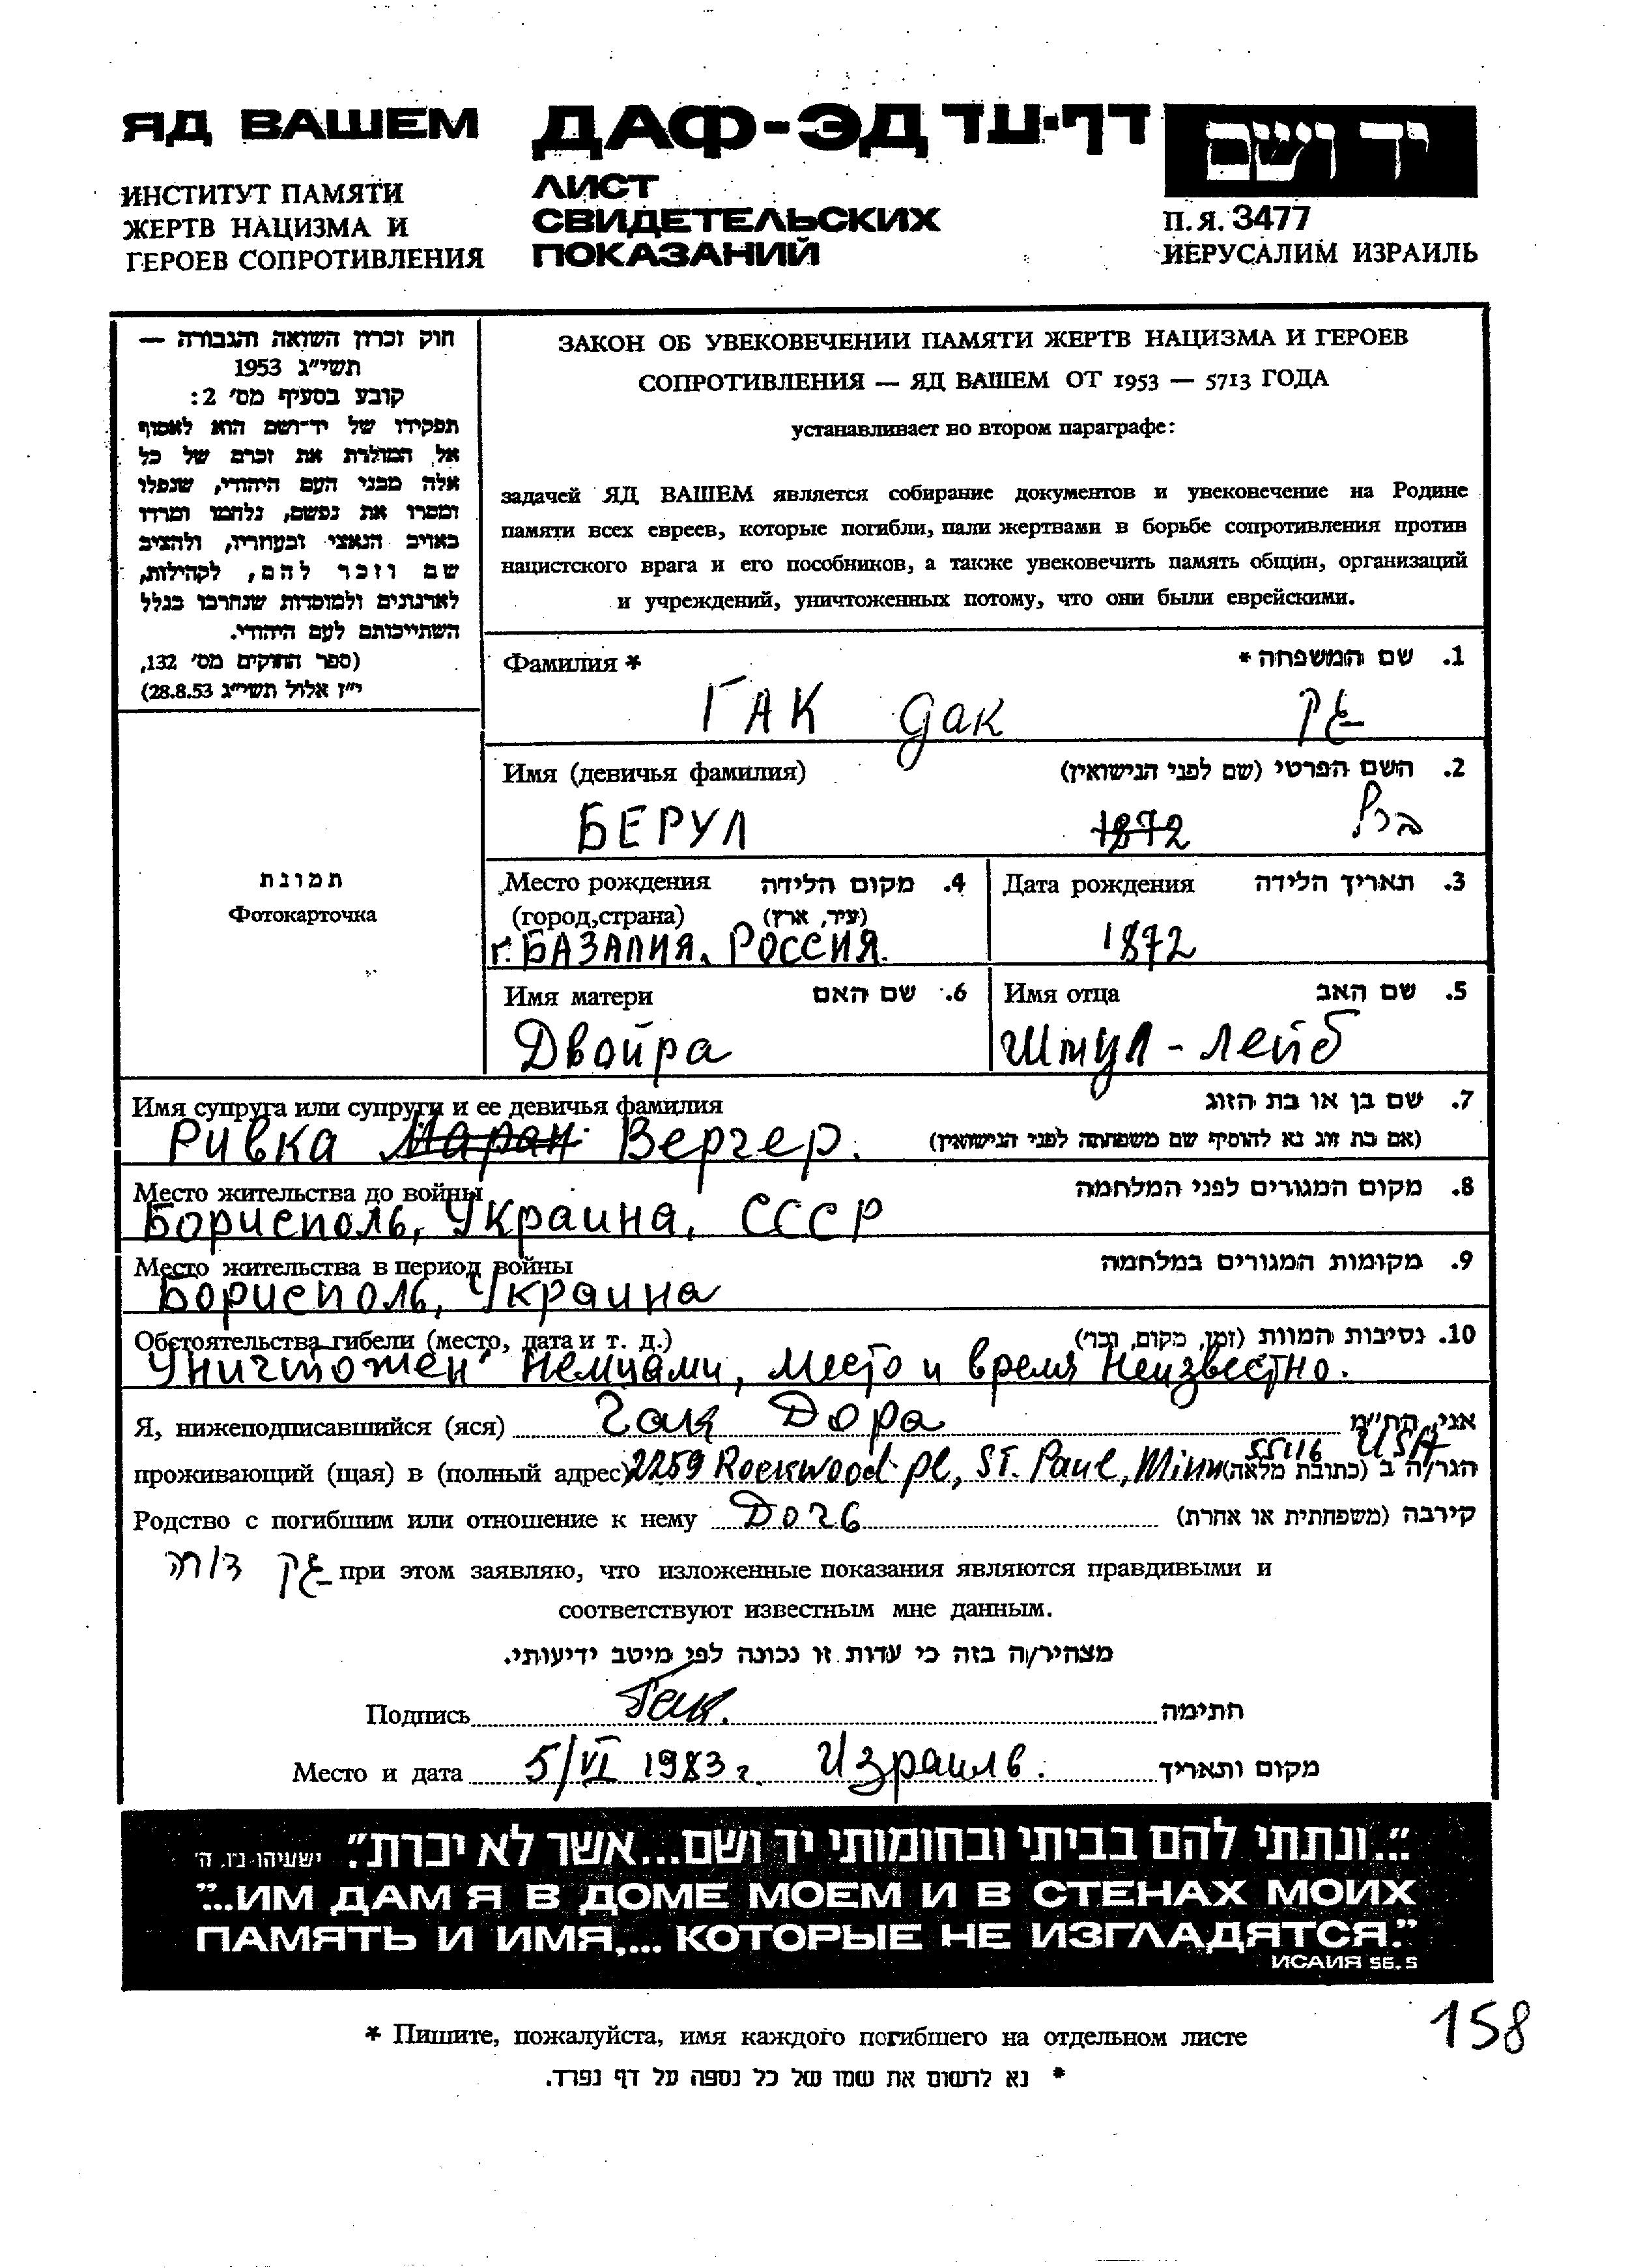 ЯД ВАШЕМ
ИНСТИТУТ ПАМЯТИ
ЖЕРТВ НАЦИЗМА И
ГЕРОЕВ СОПРОТИВЛЕНИЯ
ДАФ-ЭД דף-עד
ЛИСТ
СВИДЕТЕЛЬСКИХ
ПОКАЗАНИЙ
יד ושם
П.Я. 3477
ИЕРУСАЛИМ ИЗРАИЛЬ
חוק זכרון השואה והגבורה —
תשי"ג 1953
קובע בסעיף מס' 2:
תפקידו של יד-ושם הוא לאסוף
אל המולדת את זכרם של כל
אלה מבני העם היהודי, שנפלו
ומסרו את נפשם, נלחמו ומרדו
באויב הנאצי ובעוזריו, ולהציב
שם וזכר להם, לקהילות,
לארגונים ולמוסדות שנחרבו בגלל
השתייכותם לעם היהודי.
(ספר החוקים מס' 132,
י"ז אלול תשי"ג 28.8.53)
תמונת
Фотокарточка
ЗАКОН ОБ УВЕКОВЕЧЕНИИ ПАМЯТИ ЖЕРТВ НАЦИЗМА И ГЕРОЕВ
СОПРОТИВЛЕНИЯ — ЯД ВАШЕМ ОТ 1953 — 5713 ГОДА
устанавливает во втором параграфе:
задачей ЯД ВАШЕМ является собирание документов и увековечение на Родине
памяти всех евреев, которые погибли, пали жертвами в борьбе сопротивления против
нацистского врага и его пособников, а также увековечить память общин, организаций
и учреждений, уничтоженных потому, что они были еврейскими.
Фамилия * 1. שם המשפחה *
ГАК gак גק
Имя (девичья фамилия) 2. השם הפרטי (שם לפני הנישואין)
БЕРУЛ 1872 ברל
Место рождения 4. מקום הלידה
(город,страна) (עיר, ארץ)
г. БАЗАЛИЯ. РОССИЯ.
Дата рождения 3. תאריך הלידה
1872
Имя матери 6. שם האם
Двойра
Имя отца 5. שם האב
Шмул - лейб
Имя супруга или супруги и ее девичья фамилия 7. שם בן או בת הזוג
(אם בת זוג נא להוסיף שם משפחתה לפני הנישואין)
Ривка Маран Вергер.
Место жительства до войны 8. מקום המגורים לפני המלחמה
Борисполь, Украина, СССР
Место жительства в период войны 9. מקומות המגורים במלחמה
Борисполь, Украина
Обстоятельства гибели (место, дата и т. д.) 10. נסיבות המוות (זמן, מקום, וכו')
Уничтожен немцами, место и время неизвестно.
Я, нижеподписавшийся (яся) Гак Дора אני, הח"מ
проживающий (щая) в (полный адрес) 2259 Rockwood pl, ST. Paul, Minn 55116 USA הגר/ה ב (כתובת מלאה)
Родство с погибшим или отношение к нему Дочь קירבה (משפחתית או אחרת)
גק דורה при этом заявляю, что изложенные показания являются правдивыми и
соответствуют известным мне данным.
מצהיר/ה בזה כי עדות זו נכונה לפי מיטב ידיעותי.
Подпись Гак. חתימה
Место и дата 5/VI 1983 г. Израиль. מקום ותאריך
"...ונתתי להם בביתי ובחומותי יד ושם...אשר לא יכרת". ישעיהו נ"ו, ה'
"...ИМ ДАМ Я В ДОМЕ МОЕМ И В СТЕНАХ МОИХ
ПАМЯТЬ И ИМЯ,... КОТОРЫЕ НЕ ИЗГЛАДЯТСЯ."
ИСАИЯ 56.5
158
* Пишите, пожалуйста, имя каждого погибшего на отдельном листе
* נא לרשום את שמו של כל נספה על דף נפרד.